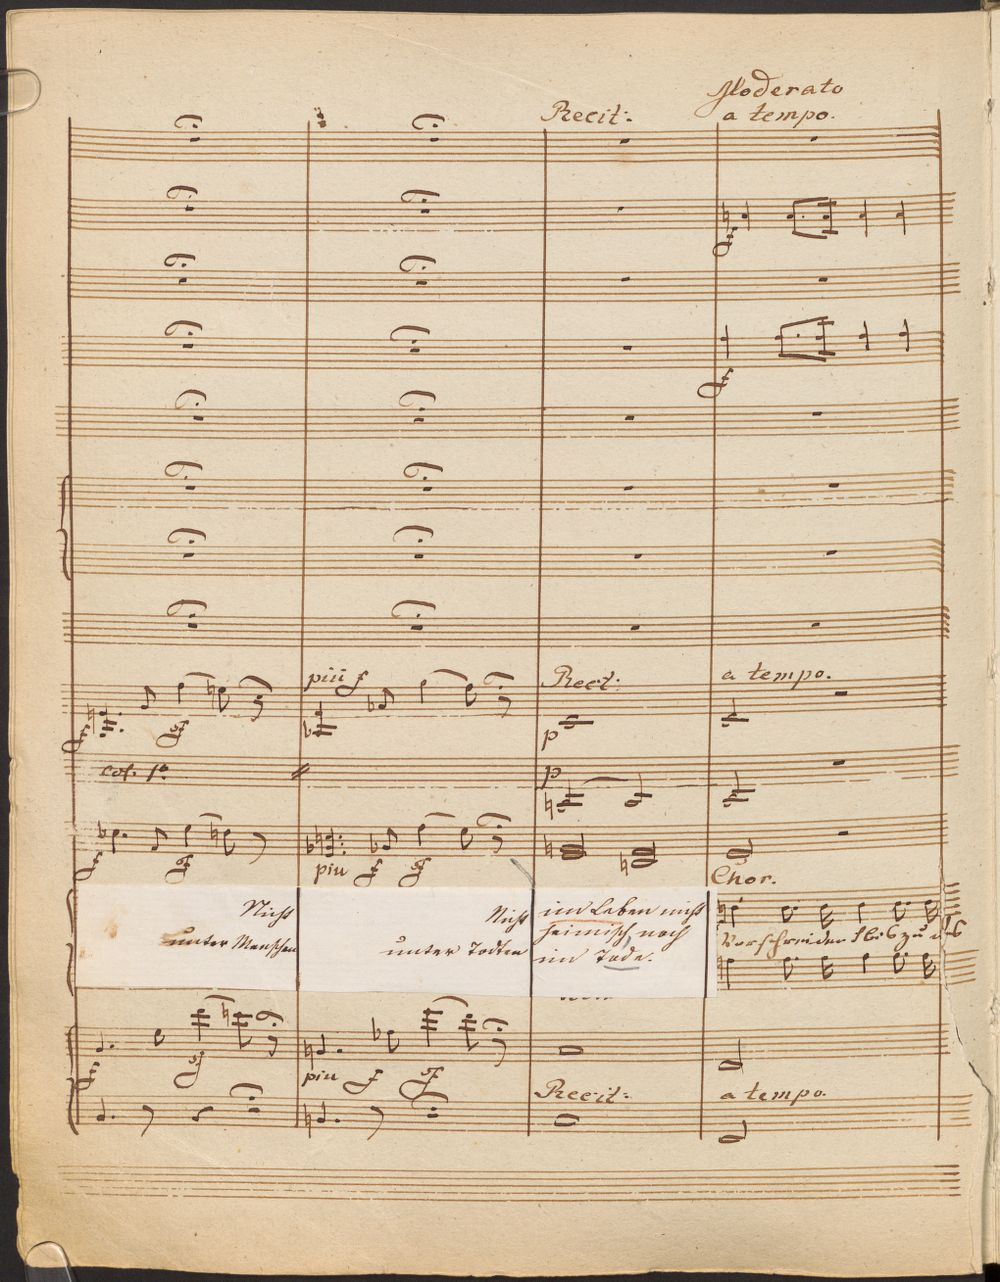 Moderato
Recit: a tempo.
piu f Rect: a tempo.
p
col. 1º p
piu
Chor.
Nicht
unter Menschen
Nicht
unter Todten
im Leben nicht
heimisch, noch
im Tode.
piu f
Recit: a tempo.